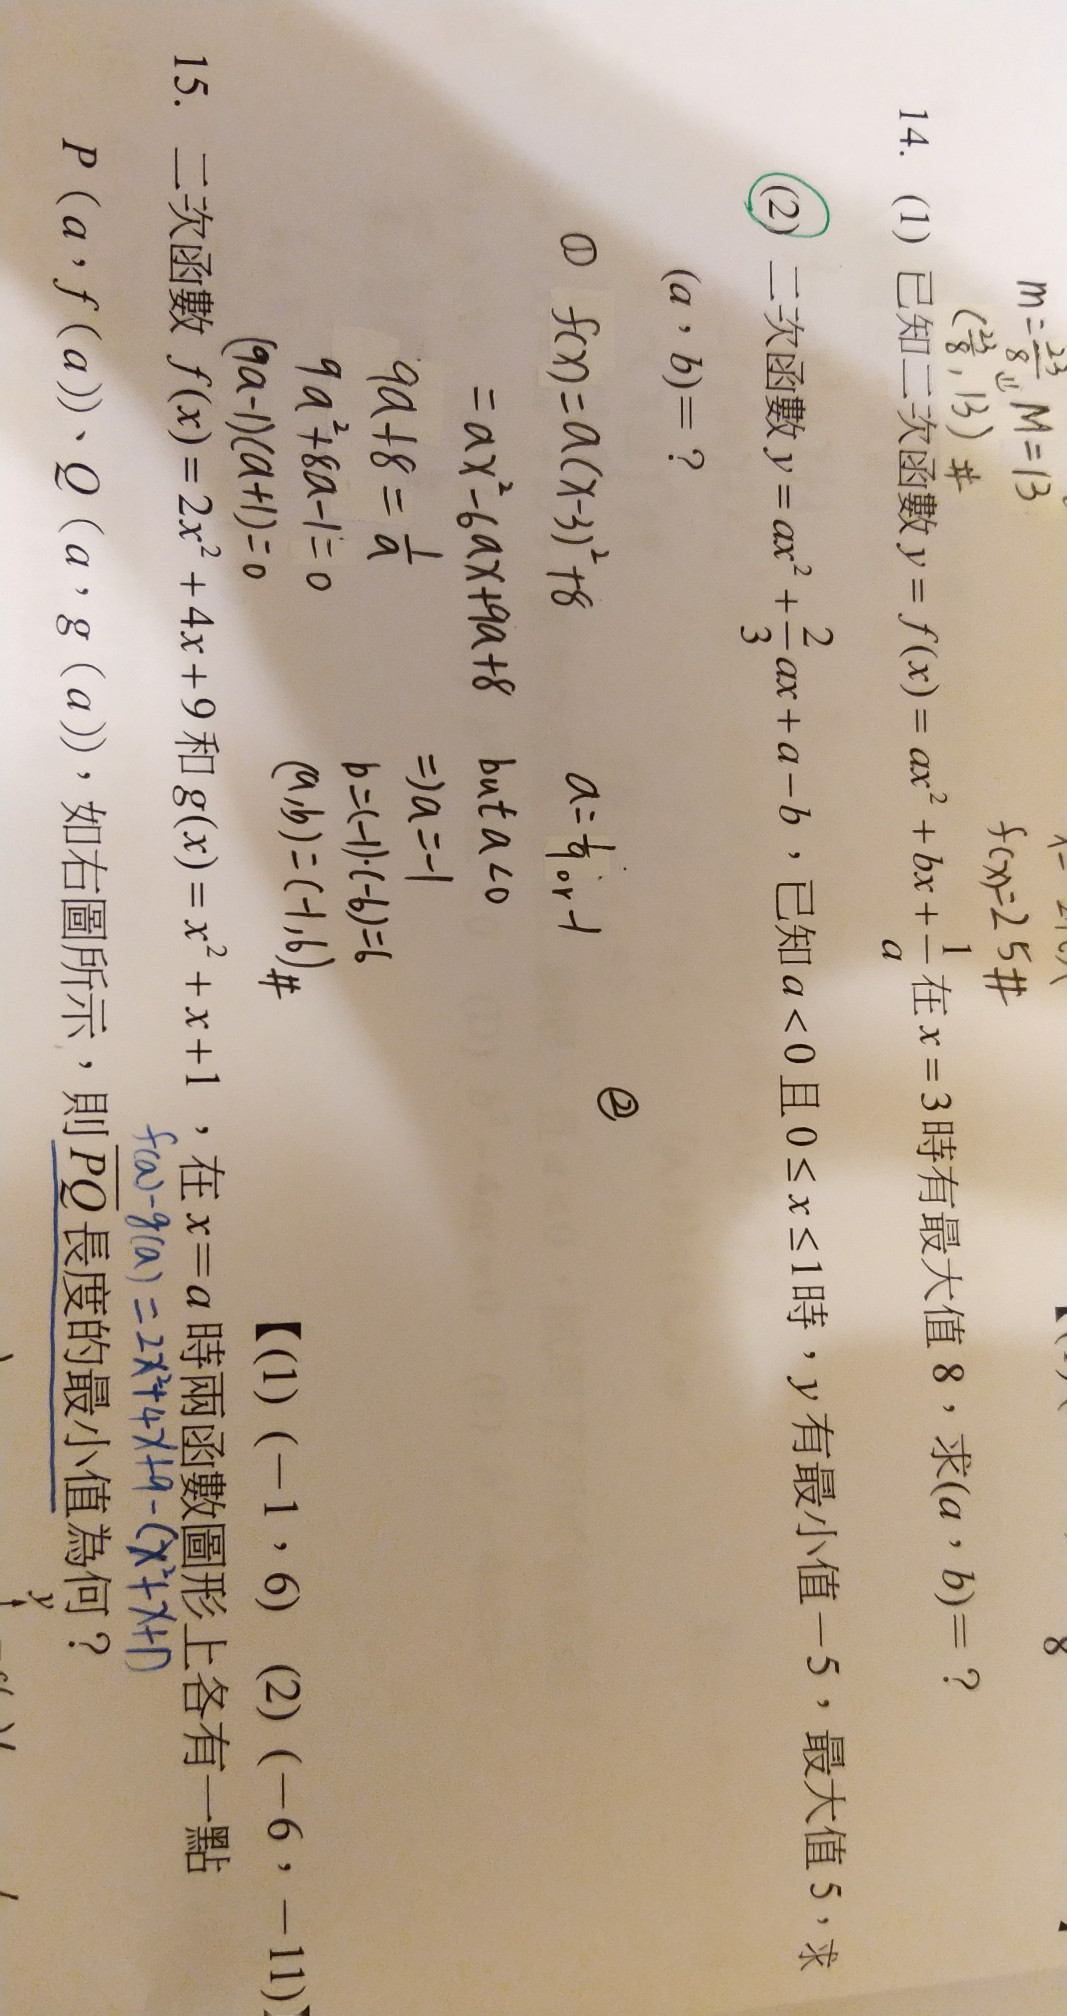 m=23/8, M=13
(23/8, 13) #
f(x)=25#
14. (1) 已知二次函數 y = f(x) = ax² + bx + 1/a 在 x = 3 時有最大值 8,求(a,b)= ?
(2) 二次函數 y = ax² + 2/3 ax + a − b,已知 a < 0 且 0 ≤ x ≤ 1 時,y 有最小值 −5,最大值 5,求
(a,b)= ?
① f(x) = a(x-3)²+8
= ax²-6ax+9a+8
9a+8 = 1/a
9a²+8a-1=0
(9a-1)(a+1)=0
a=1/9 or -1
but a<0
=> a=-1
b=(-1)·(-6)=6
(a,b)=(-1,6)#
②
【(1) (−1,6) (2) (−6,−11)】
15. 二次函數 f(x) = 2x² + 4x + 9 和 g(x) = x² + x + 1,在 x = a 時兩函數圖形上各有一點
f(a)-g(a) = 2x²+4x+9-(x²+x+1)
P(a,f(a))、Q(a,g(a)),如右圖所示,則 PQ 長度的最小值為何?
y